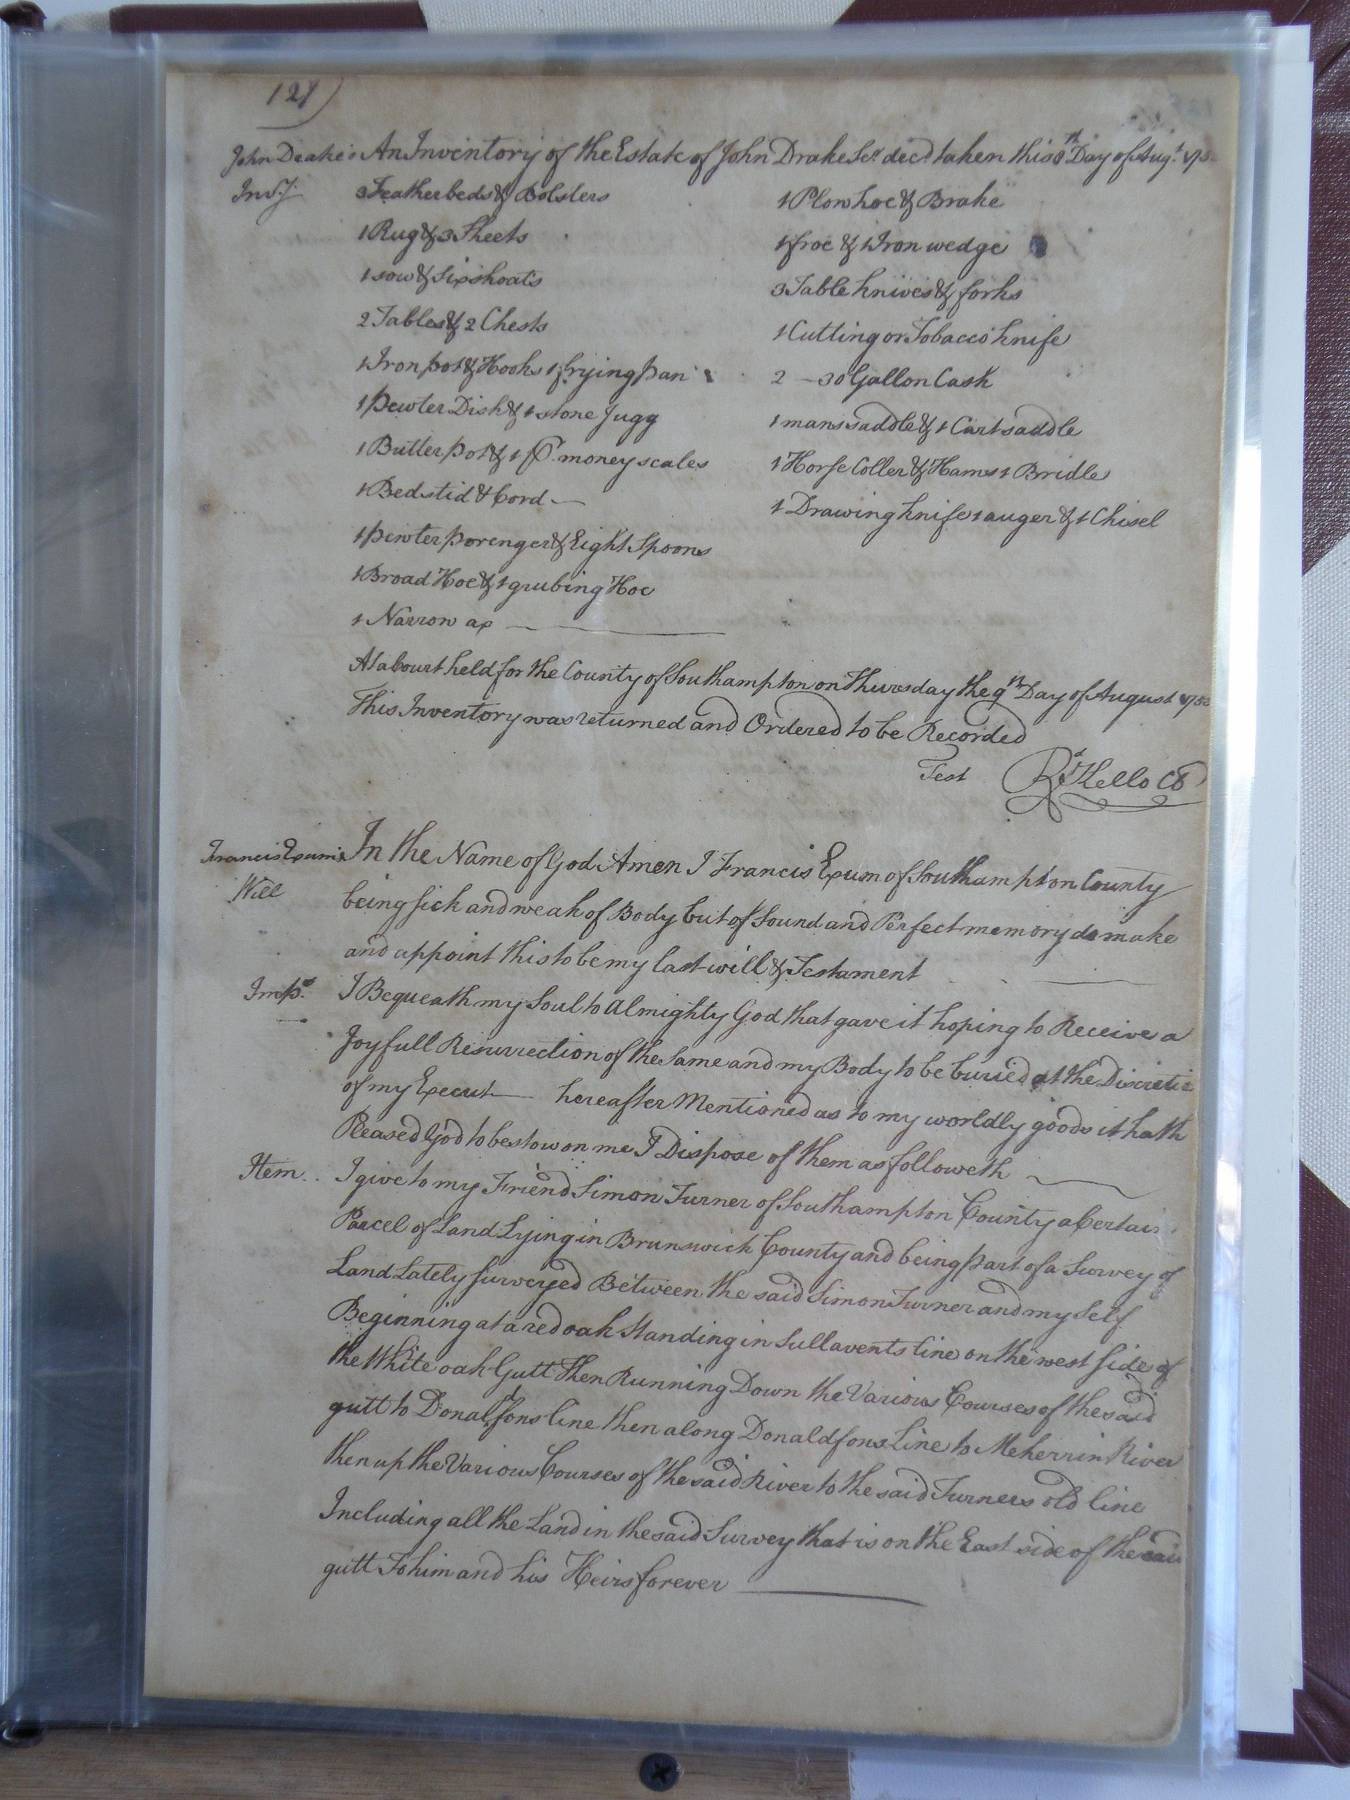 121)
John Drake's An Inventory of the Estate of John Drake Senr. decd. taken this 8th Day of Augt. 175
Invy.
3 Featherbeds & Bolsters
1 Rug & 3 Sheets
1 sow & six shoats
2 Tables & 2 Chests
1 Iron pot & Hooks 1 frying pan
1 pewter Dish & 1 stone Jugg
1 Butter pot & 1 pr. money scales
1 Bedstid & Cord
1 pewter porenger & Eight Spoons
1 Broad Hoe & 1 grubing Hoe
1 Narrow ax
1 Plow hoe & Brake
1 froe & 1 Iron wedge
3 Table knives & forks
1 Cutting or Tobacco knife
2 - 30 Gallon Cask
1 mans saddle & 1 Cart saddle
1 Horse Coller & Hams 1 Bridle
1 Drawing knife 1 auger & 1 Chisel
At a Court held for the County of Southampton on Thursday the 9th Day of August 175
This Inventory was returned and Ordered to be Recorded
Test Rd Kello CC
Francis Exum's In the Name of God Amen I Francis Exum of Southampton County
Will being sick and weak of Body but of Sound and Perfect memory do make
and appoint this to be my last will & Testament
Imps. I Bequeath my Soul to Almighty God that gave it hoping to Receive a
Joyfull Resurrection of the Same and my Body to be buried at the Discretio
of my Execut hereafter Mentioned as to my worldly goods it hath
Pleased God to bestow on me I Dispose of them as followeth
Item.. I give to my Friend Simon Turner of Southampton County a Certain
Parcel of Land Lying in Brunswick County and being part of a Survey of
Land Lately Surveyed Between the said Simon Turner and my Self
Beginning at a red oak Standing in Sullavents line on the west side of
the White oak Gutt then Running Down the Various Courses of the said
gutt to Donaldsons line then along Donaldsons Line to Meherrin River
then up the Various Courses of the said River to the said Turners old line
Including all the Land in the said Survey that is on the East side of the said
gutt To him and his Heirs forever